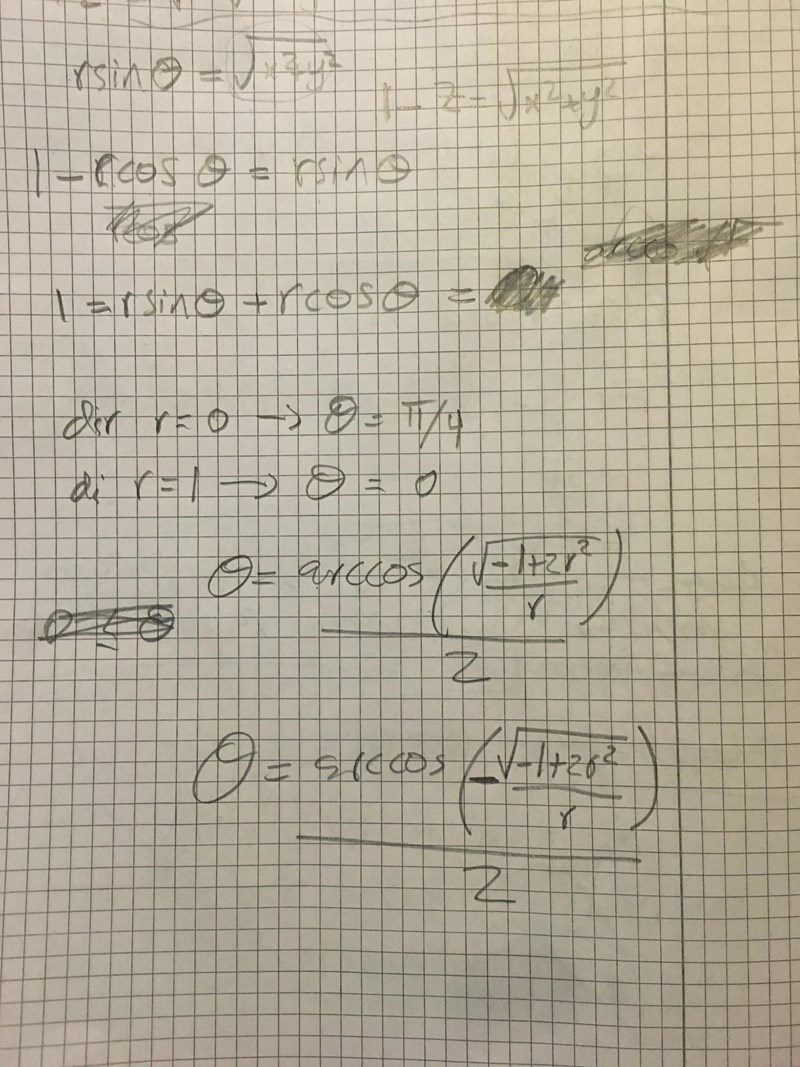 r sin θ = √x²+y²
1 - z = √x²+y²
1 - r cos θ = r sin θ
1 = r sin θ + r cos θ =
r = 0 → θ = π/4
di r = 1 → θ = 0
θ = arccos (√-1+2r² / r) / 2
θ = arccos (-√-1+2r² / r) / 2